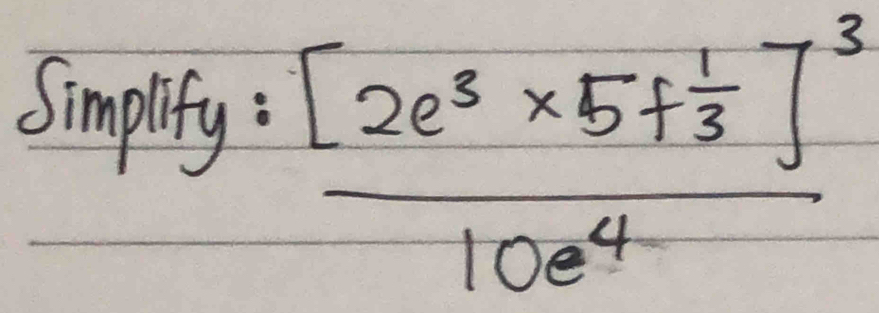 Simplify: [2e³ × 5f^(1/3)]³
10e⁴